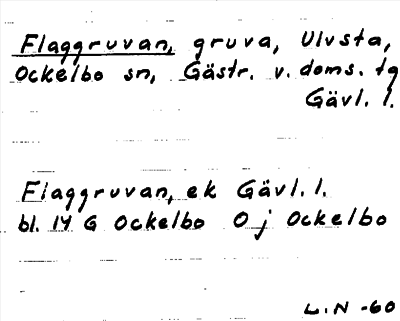 Flaggruvan, gruva, Ulvsta,
Ockelbo sn, Gästr. v. doms. tg
Gävl. l.
Flaggruvan, ek Gävl. l.
bl. 14 G Ockelbo O j Ockelbo
L.N -60